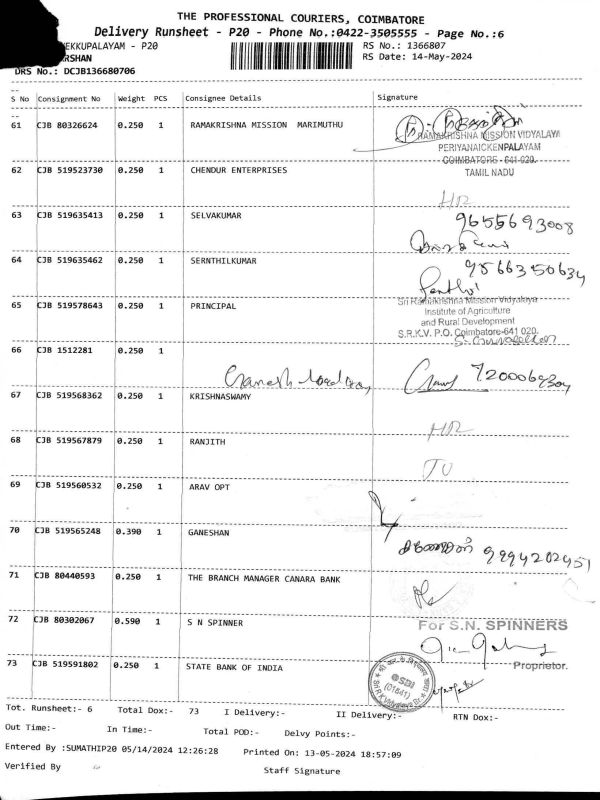 THE PROFESSIONAL COURIERS, COIMBATORE
Delivery Runsheet - P20 - Phone No.:0422-3505555 - Page No.:6
EKKUPALAYAM - P20 RS No.: 1366807
ARSHAN RS Date: 14-May-2024
DRS No.: DCJB136680706
S No Consignment No Weight PCS Consignee Details Signature
61 CJB 80326624 0.250 1 RAMAKRISHNA MISSION MARIMUTHU
RAMAKRISHNA MISSION VIDYALAYA
PERIYANAICKENPALAYAM
COIMBATORE - 641 020.
62 CJB 519523730 0.250 1 CHENDUR ENTERPRISES TAMIL NADU
63 CJB 519635413 0.250 1 SELVAKUMAR 9655693008
64 CJB 519635462 0.250 1 SERNTHILKUMAR 9566350634
Senthil
65 CJB 519578643 0.250 1 PRINCIPAL Sri Ramakrishna Mission Vidyalaya
Institute of Agriculture
and Rural Development
S.R.K.V. P.O. Coimbatore-641 020.
66 CJB 1512281 0.250 1
Ganesh 7200069304
67 CJB 519568362 0.250 1 KRISHNASWAMY
68 CJB 519567879 0.250 1 RANJITH
69 CJB 519560532 0.250 1 ARAV OPT
70 CJB 519565248 0.390 1 GANESHAN
கணேசன் 9994202457
71 CJB 80440593 0.250 1 THE BRANCH MANAGER CANARA BANK
72 CJB 80302067 0.590 1 S N SPINNER For S.N. SPINNERS
Proprietor.
73 CJB 519591802 0.250 1 STATE BANK OF INDIA
SBI
(01641)
Tot. Runsheet:- 6 Total Dox:- 73 I Delivery:- II Delivery:- RTN Dox:-
Out Time:- In Time:- Total POD:- Delvy Points:-
Entered By :SUMATHIP20 05/14/2024 12:26:28 Printed On: 13-05-2024 18:57:09
Verified By Staff Signature